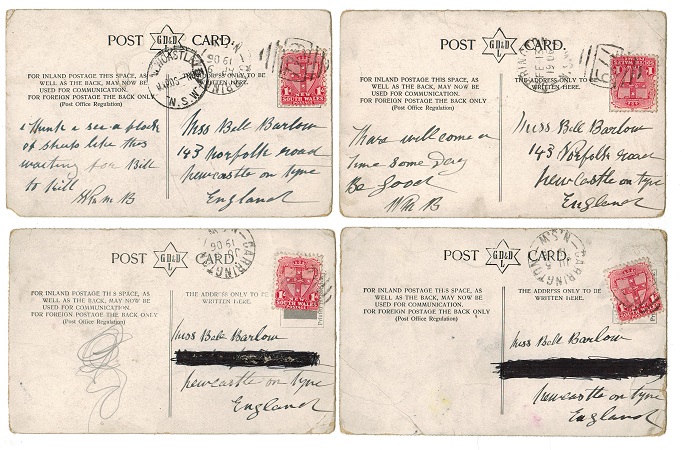 POST GD&D CARD.
FOR INLAND POSTAGE THIS SPACE, AS
WELL AS THE BACK, MAY NOW BE
USED FOR COMMUNICATION.
FOR FOREIGN POSTAGE THE BACK ONLY
(Post Office Regulation)
ADDRESS ONLY TO BE
WRITTEN HERE.
N.S.W.
SOUTH WALES
I think a see a flock
of sheep like this
waiting for Bill
to kill
Wm B
Miss Bell Barlow
143 Norfolk road
Newcastle on Tyne
England
POST GD&D CARD.
FOR INLAND POSTAGE THIS SPACE, AS
WELL AS THE BACK, MAY NOW BE
USED FOR COMMUNICATION.
FOR FOREIGN POSTAGE THE BACK ONLY
(Post Office Regulation)
THE ADDRESS ONLY TO BE
WRITTEN HERE.
will come a
time some day
Be good
Wm B
Miss Bell Barlow
143 Norfolk road
Newcastle on Tyne
England
POST GD&D CARD.
CARRINGTON N.S.W.
19 06
FOR INLAND POSTAGE THIS SPACE, AS
WELL AS THE BACK, MAY NOW BE
USED FOR COMMUNICATION.
FOR FOREIGN POSTAGE THE BACK ONLY
(Post Office Regulation)
THE ADDRESS ONLY TO BE
WRITTEN HERE.
SOUTH WALES
Miss Bell Barlow
Newcastle on Tyne
England
POST GD&D CARD.
CARRINGTON N.S.W.
FOR INLAND POSTAGE THIS SPACE, AS
WELL AS THE BACK, MAY NOW BE
USED FOR COMMUNICATION.
FOR FOREIGN POSTAGE THE BACK ONLY
(Post Office Regulation)
THE ADDRESS ONLY TO BE
WRITTEN HERE.
Miss Bell Barlow
Newcastle on Tyne
England